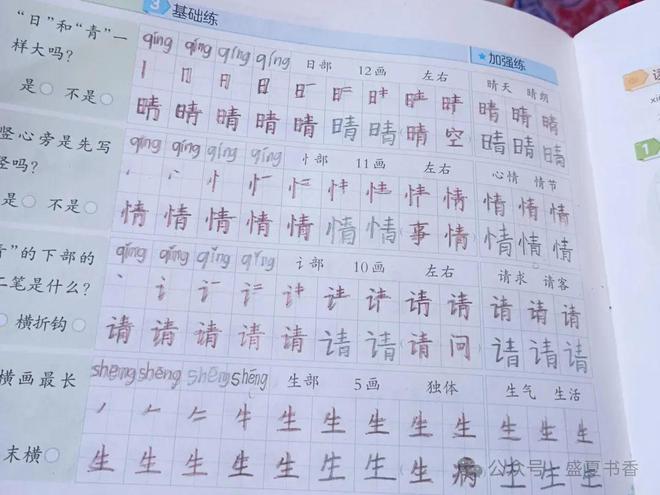 3 基础练
★加强练
“日”和“青”一
样大吗？
是 不是
qíng qíng qíng qíng 日部 12画 左右
晴天 晴朗
晴 晴 晴 晴 晴 晴 晴 空
晴 晴 晴
晴 晴 晴
竖心旁是先写
竖吗？
是 不是
qíng qíng qíng qíng 忄部 11画 左右
心情 情节
情 情 情
情 情 情 情 情 情 情 事 情
情 情 情
”的下部的
二笔是什么？
横折钩
qǐng qǐng qǐng qǐng 讠部 10画 左右
请求 请客
请 请
请 请 请
请 请 请 请 请 请 请 请 问
请 请 请
横画最长
末横
shēng shēng shēng shēng 生部 5画 独体
生气 生活
生 生 生 生 生
生 生 生
生 生 生 生 生 生 生 生 病
生 生 生
公众号 · 盛夏书香
1